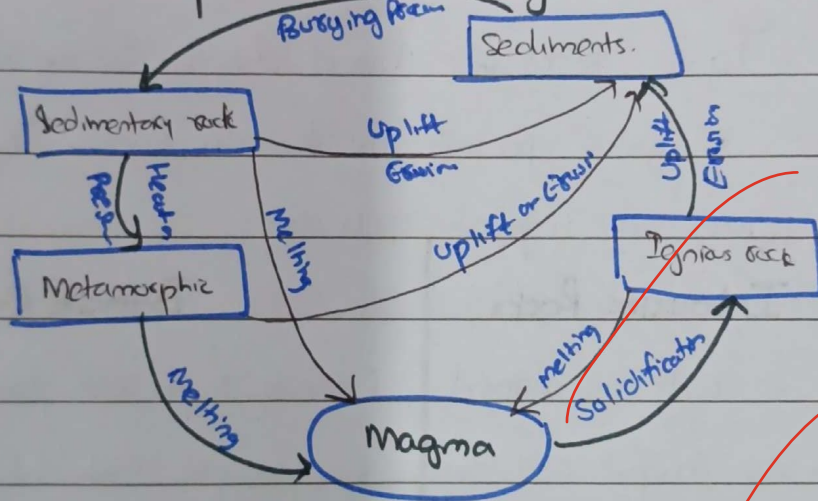 Burying
Sediments.
Sedimentary rock
Uplift
Erosion
Uplift
Erosion
Heat
Melting
Uplift or Erosion
Ignias rock
Metamorphic
Melting
Melting
Solidification
Magma